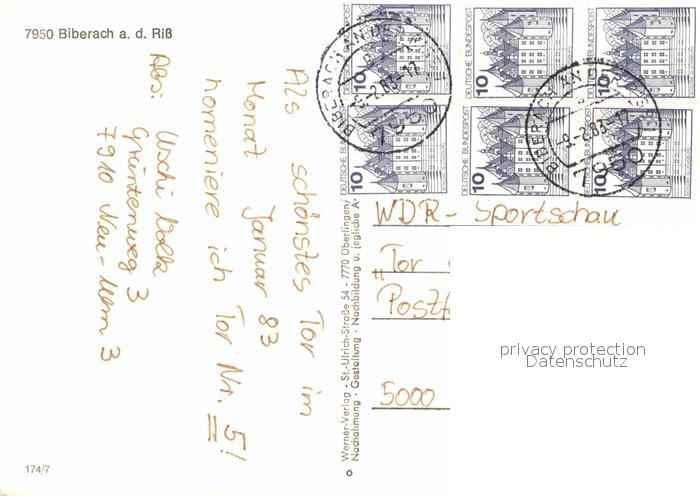 7950 Biberach a. d. Riß
Abs: Uschi Volk
Grüntenweg 3
7910 Neu-Ulm 3
Als schönstes Tor im
Monat Januar 83
nomeniere ich Tor Nr. 5!
174/7
Werner-Verlag - St.-Ulrich-Straße 54 - 7770 Überlingen/
Nachahmung - Gestaltung - Nachbildung u. jegliche A
10 DEUTSCHE BUNDESPOST
10 DEUTSCHE BUNDESPOST
10 DEUTSCHE BUNDESPOST
10 DEUTSCHE BUNDESPOST
10 DEUTSCHE BUNDESPOST
10 DEUTSCHE BUNDESPOST
BIBERACH AN DER RISS
-9.-2.83-17
7950
BIBERACH AN DER RISS
-9.-2.83-17
7950
WDR - Sportschau
"Tor
Postf
5000
privacy protection
Datenschutz